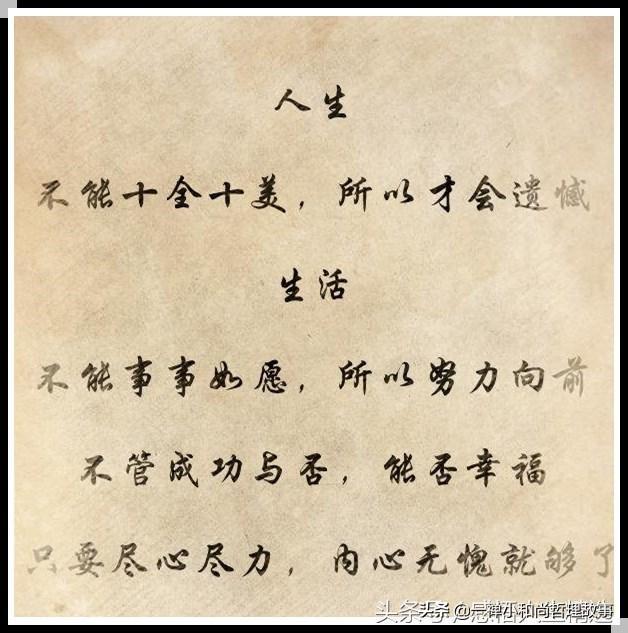 人生
不能十全十美，所以才会遗憾
生活
不能事事如愿，所以努力向前
不管成功与否，能否幸福
只要尽心尽力，内心无愧就够了
头条 @一禅小和尚哲理故事